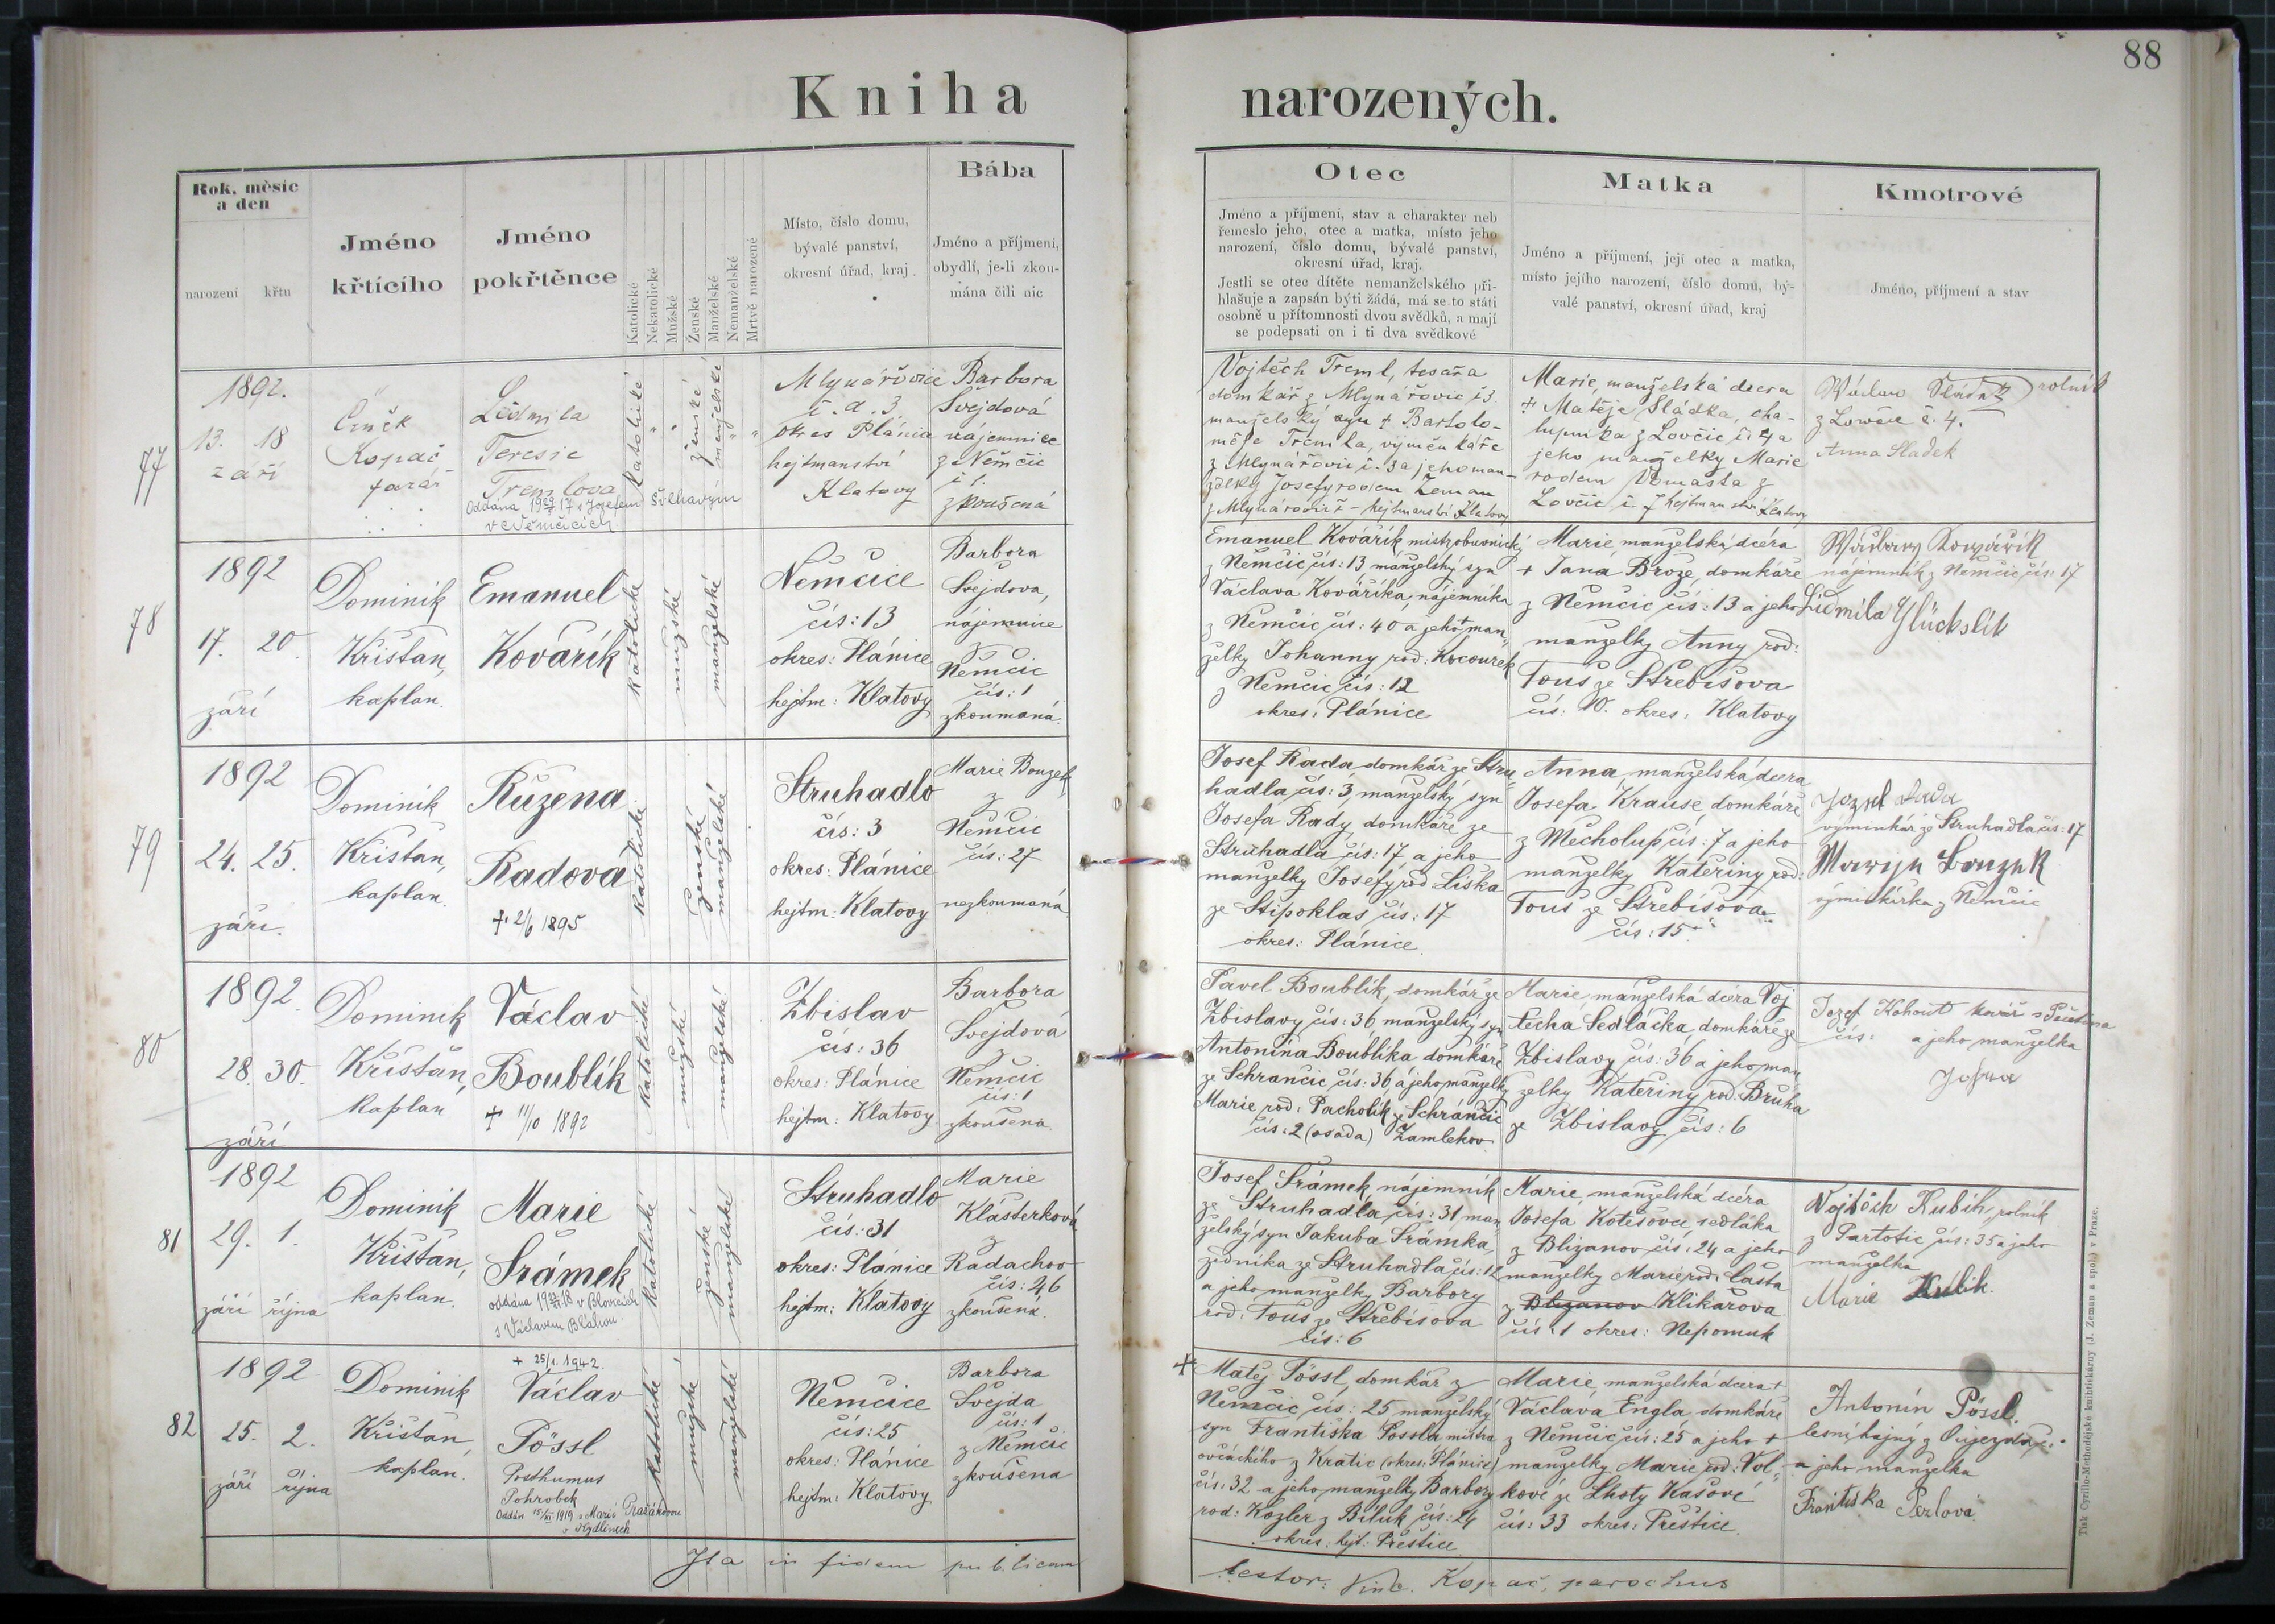 88
Kniha narozených.
Rok, měsíc
a den
narození
křtu
Jméno
křtícího
Jméno
pokřtěnce
Katolické
Nekatolické
Mužské
Ženské
Manželské
Nemanželské
Mrtvě narozené
Místo, číslo domu,
bývalé panství,
okresní úřad, kraj.
Bába
Jméno a příjmení,
obydlí, je-li zkou-
mána čili nic
Otec
Jméno a příjmení, stav a charakter neb
řemeslo jeho, otec a matka, místo jeho
narození, číslo domu, bývalé panství,
okresní úřad, kraj.
Jestli se otec dítěte nemanželského při-
hlašuje a zapsán býti žádá, má se to státi
osobně u přítomnosti dvou svědků, a mají
se podepsati on i ti dva svědkové
Matka
Jméno a příjmení, její otec a matka,
místo jejího narození, číslo domu, bý-
valé panství, okresní úřad, kraj
Kmotrové
Jméno, příjmení a stav
77
1892.
13. 18
září
Činěk
Kopač
farář
Ludmila
Teresie
Tremlova
Oddána 1917 s Josefem Švihavým
v Němčicích
katolické
ženské
manželské
Mlynářovice
č. d. 3.
Okres Plánice
hejtmanství
Klatovy
Barbora
Švejdová
nájemnice
z Němčic
č 1.
zkoušená
Vojtěch Treml, tesař a
domkář z Mlynářovic č 3.
manželský syn † Bartolo-
měje Tremla, výměnkáře
z Mlynářovic č. 3 a jeho man-
želky Josefy rodem Zeman
z Mlynářovic č - hejtmanství Klatovy
Marie, manželská dcera
† Matěje Sládka, cha-
lupníka z Lovčic č 4 a
jeho manželky Marie
rodem Vomasta z
Lovčic č 7 hejtmanství Klatovy
Václav Sladek rolník
z Lovčic č. 4.
Anna Sladek
78
1892
17. 20.
září
Dominik
Kristan,
kaplan.
Emanuel
Kovářík
katolické
mužské
manželské
Němčice
čís: 13
okres: Plánice
hejtm: Klatovy
Barbora
Svejdova,
nájemnice
z
Němčic
čís: 1
zkoumaná.
Emanuel Kovářík mistr obuvnický
z Němčic čís: 13 manželský syn
Václava Kováříka, nájemníka
z Němčic čís: 40 a jeho † man-
želky Johanny rod: Kocourek
z Němčic čís: 12
okres: Plánice
Marie manželská dcéra
† Jana Brože, domkáře
z Němčic čís: 13 a jeho
manželky Anny rod:
Touš ze Střebišova
čís: 10. okres: Klatovy
Václav Kovářík
nájemník z Němčic čís: 17
Ludmila Glückslik
79
1892
24. 25.
září.
Dominik
Kristan,
kaplan.
Růžena
Radova
† 2/6 1895
katolické
ženské
manželské
Struhadlo
čís: 3
okres: Plánice
hejtm: Klatovy
Marie Bouzek
z
Němčic
čís: 27
nezkoumaná
Josef Rada domkář ze Stru-
hadla čís: 3, manželský syn
Josefa Rady, domkáře ze
Struhadla čís: 17, a jeho
manželky Josefy rod Liška
ze Štipoklas čís: 17
okres: Plánice.
Anna, manželská dcera
Josefa Krause, domkáře
z Měcholup čís: 7 a jeho
manželky Kateřiny rod:
Touš ze Střebišova
čís: 15.
Josef Rada
výminkář ze Struhadla čís: 17
Marye Bouzek
výminkářka z Němčic
80
1892.
28. 30.
září
Dominik
Kristan,
kaplan
Václav
Boublík
† 11/10 1892
katolické
mužské
manželské
Zbislav
čís: 36
okres: Plánice
hejtm: Klatovy
Barbora
Svejdová
z
Němčic
čís: 1
zkoušena.
Pavel Boublík, domkář ze
Zbislavy čís: 36 manželský syn
Antonína Boublíka domkáře
ze Schrančic čís: 36 a jeho manželky
Marie rod: Pacholík ze Schránčic
čís: 2 (osada) Zamlekov
Marie, manželská dcéra Voj
těcha Sedláčka, domkáře ze
Zbislavy čís: 36 a jeho man
želky Kateřiny rod. Bruha
ze Zbislavy čís: 6
Jozef Kohout kovář
čís: a jeho manželka
81
1892
29. 1.
září října
Dominik
Kristan,
kaplan.
Marie
Šrámek
oddána 1918 v Blovicích
s Václavem Bláhou.
katolické
ženské
manželské
Struhadlo
čís: 31
okres: Plánice
hejtm: Klatovy
Marie
Klášterková
z
Radachov
čís: 46
zkoušená.
Josef Šrámek, nájemník
ze Struhadla, čís: 31 man
želský syn Jakuba Šrámka,
zedníka ze Struhadla čís: 12
a jeho manželky Barbory
rod: Touš ze Střebišova
čís: 6
Marie, manželská dcéra
Josefa Kotešovce sedláka
z Bližanov čís: 24 a jeho
manželky Marie rod: Časta
z Blizanov Klikařova
čís: 1 okres: Nepomuk
Vojtěch Kubík, rolník
z Partoltic čís: 35 a jeho
manželka
Marie Kubík.
82
1892
25. 2.
září října
Dominik
Kristan
kaplan.
† 25/1. 1942.
Václav
Pössl
Posthumus
Pohrobek
Oddán 15/XI 1919 s Marií Pražákovou
v Hydlinech
katolické
mužské
manželské
Němčice
čís: 25
okres: Plánice
hejtm: Klatovy
Barbora
Švejda
čís: 1
z Němčic
zkoušena
† Matěj Pössl, domkář z
Němčic čís: 25 manželský
syn Františka Pössla mistra
ovčáckého z Kratic (okres: Plánice)
čís: 32 a jeho manželky Barbory
rod: Kozler z Biluk čís: 24
okres. hejt: Přeštice
Marie, manželská dcera †
Václava Engla domkáře
z Němčic čís: 25 a jeho †
manželky Marie rod: Vol-
kové ze Lhoty Kašové
čís: 33 okres: Přeštice.
Antonín Pössl.
lesní hajný z Oujezda
a jeho manželka
Františka Pezlová
Ita in fidem publicam
testor: Vinc. Kopač, parochus
Tisk Cyrillo-Methodějské knihtiskárny (J. Zeman a spol.) v Praze.